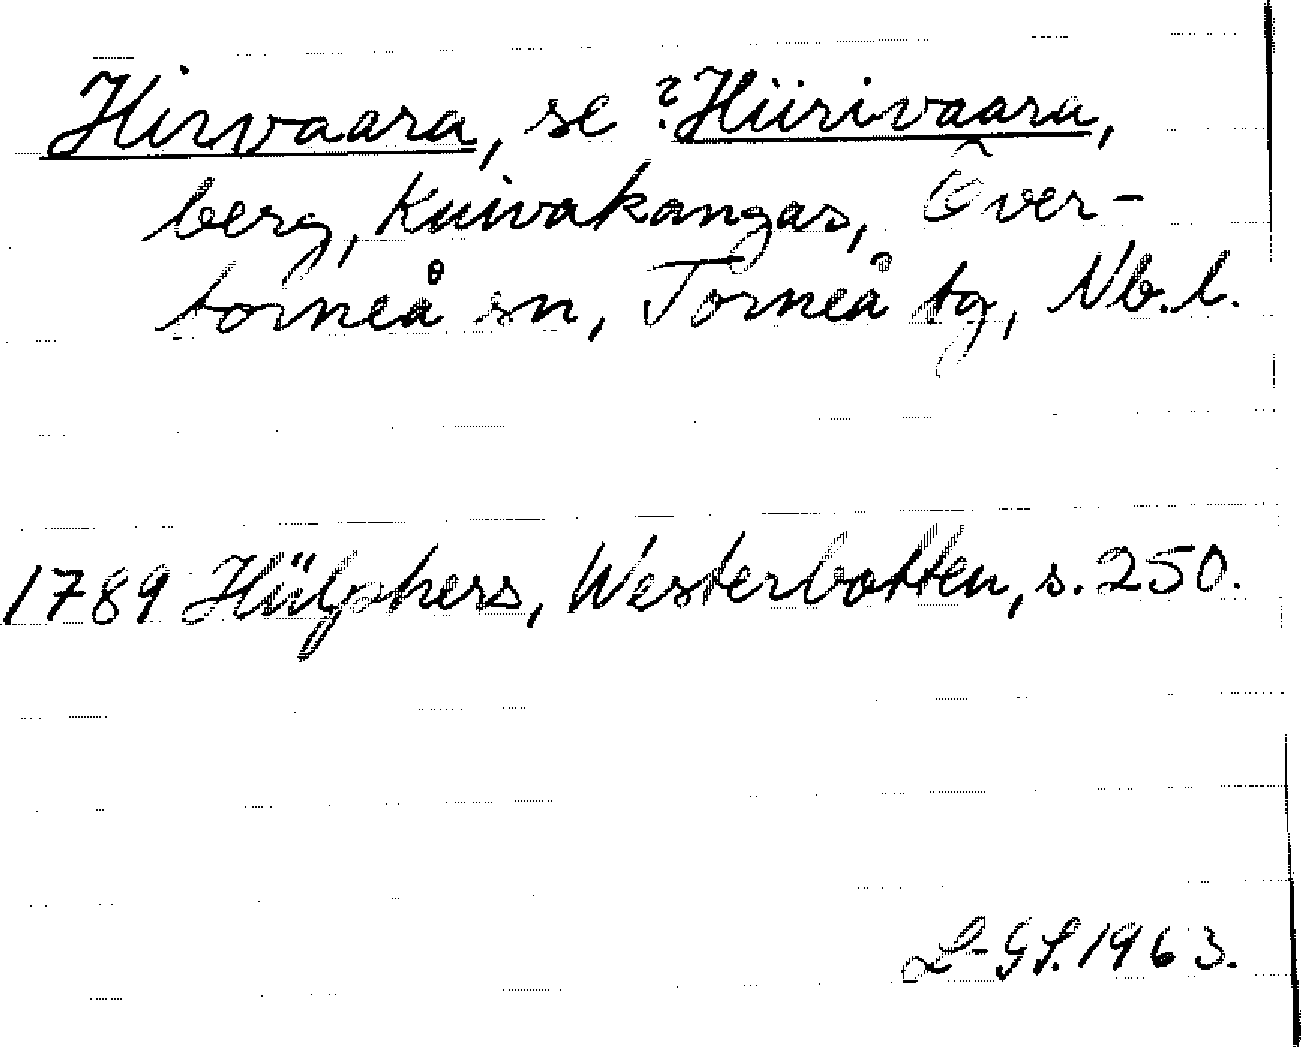 Hirvaara, se ?Hiirivaara,
berg, Kuivakangas, Över-
torneå sn, Torneå tg, Nb.l.
1789 Hülphers, Westerbotten, s. 250.
L-GS. 1963.